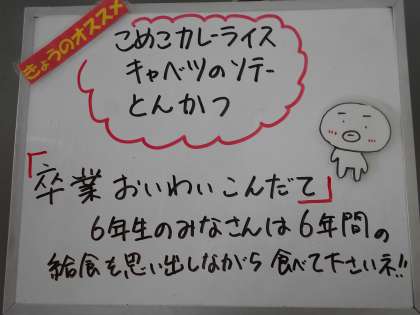 きょうのオススメ
こめこカレーライス
キャベツのソテー
とんかつ
「卒業 おいわいこんだて」
6年生のみなさんは6年間の
給食を思い出しながら 食べて下さいネ!!